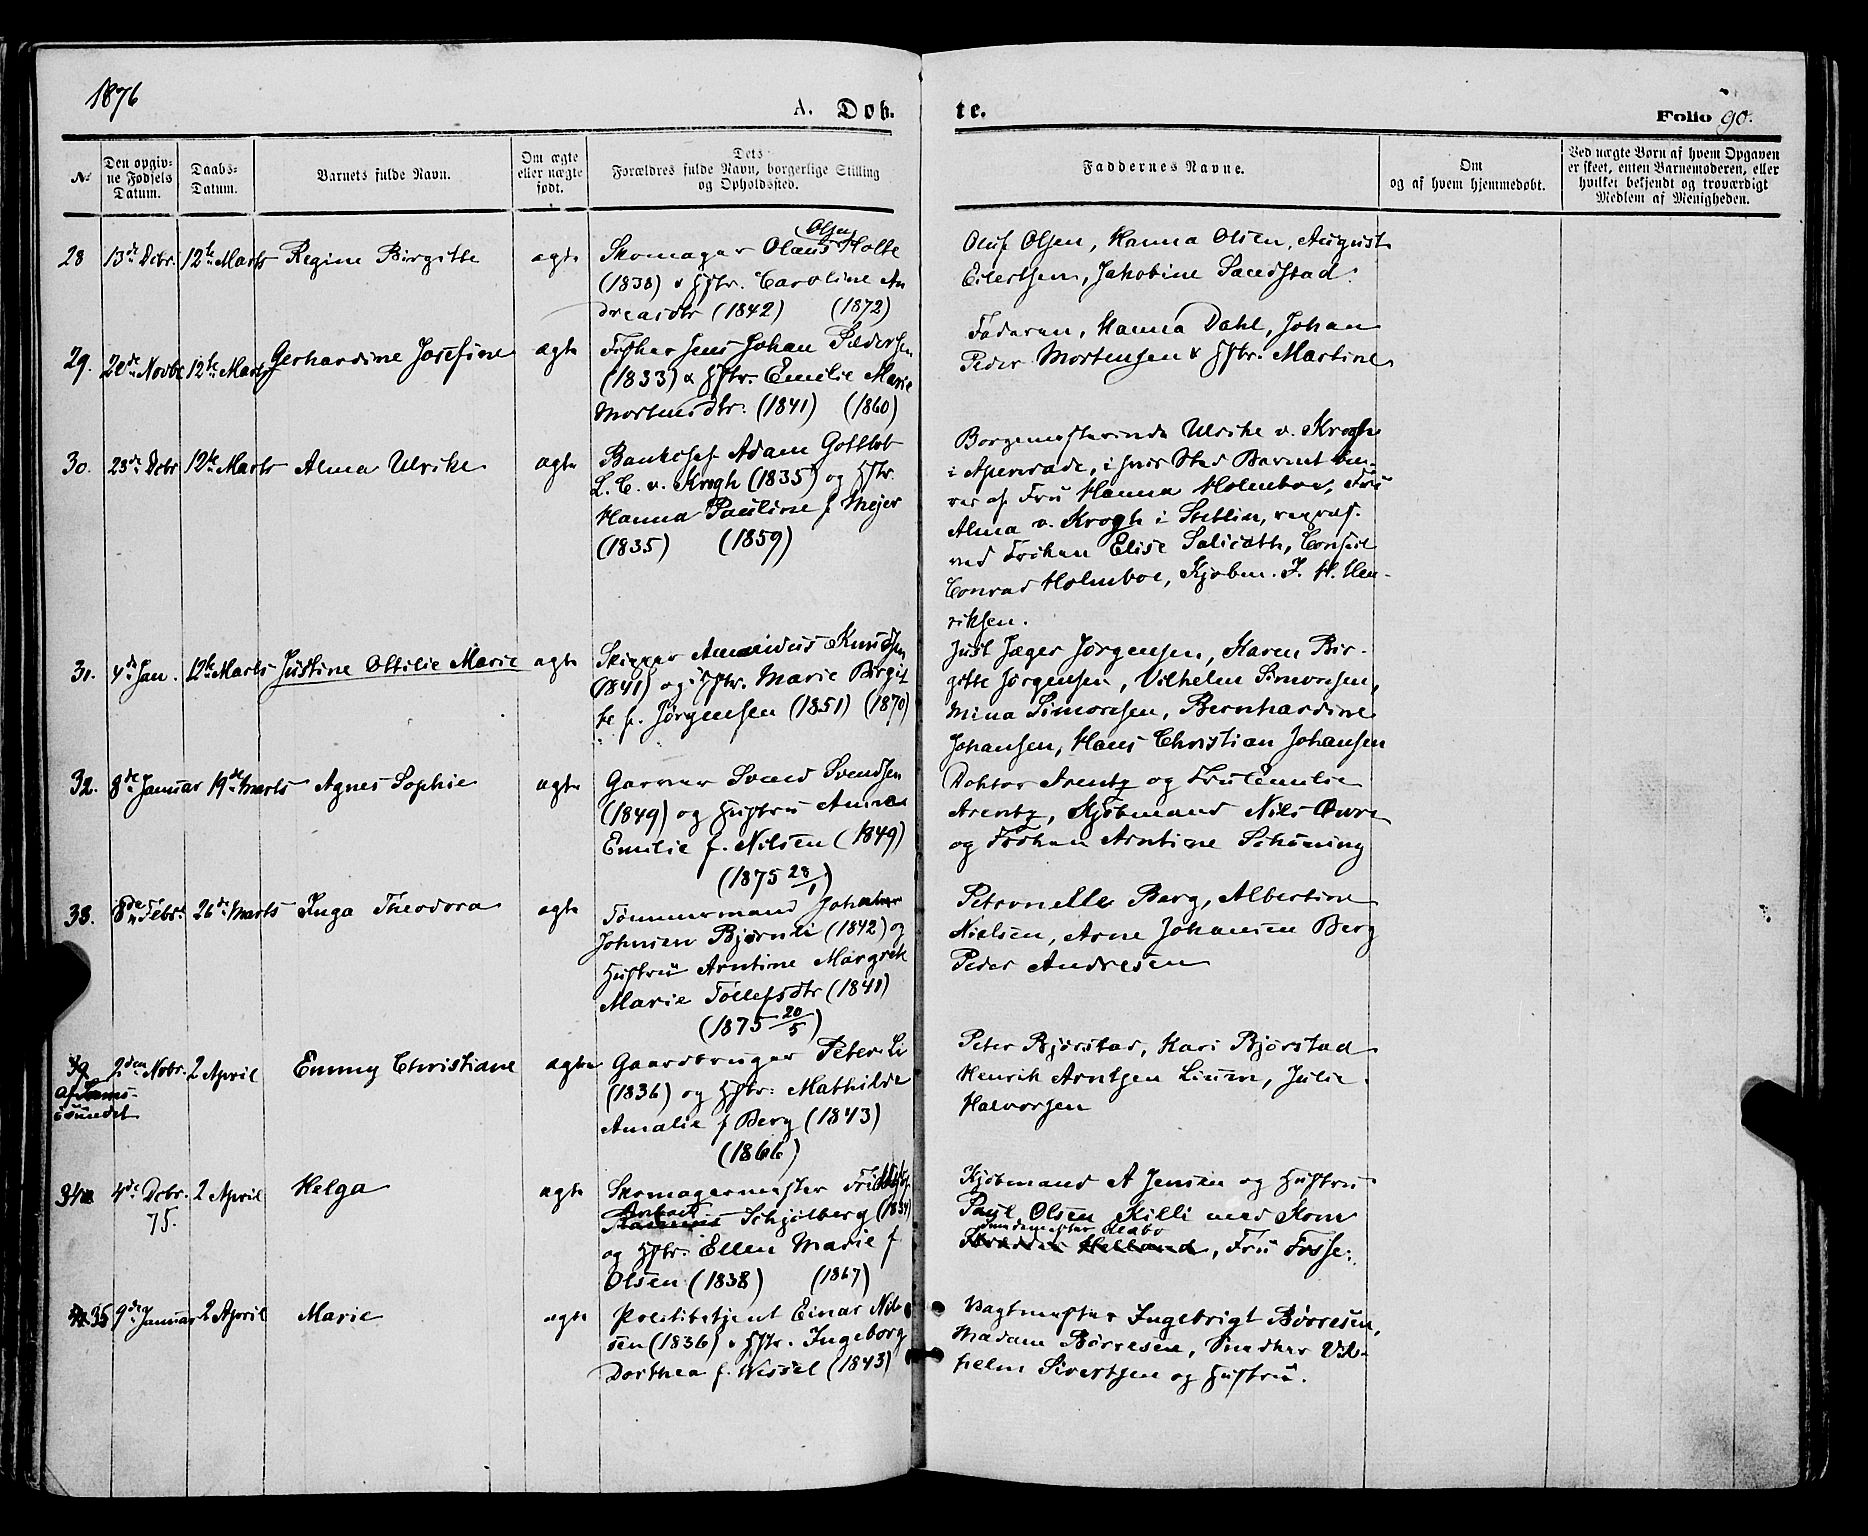 1876
A. Døb-
te.
Folio 90.
No
Den opgiv-
ne Fødsels
Datum.
Daabs-
Datum.
Barnets fulde Navn.
Om ægte
eller uægte
født.
Dets
Forældres fulde Navn, borgerlige Stilling
og Opholdssted.
Faddernes Navne.
Om
og af hvem hjemmedøbt.
Ved uægte Børn af hvem Opgaven
er skeet, enten Barnemoderen, eller
hvilket bekjendt og troværdigt
Medlem af Menigheden.
28 13de Dcbr. 12te Marts Regine Birgitte ægte
Olsen
Skomager Olaus Holte
(1838) & Hstr. Caroline An
dreasdtr (1842) (1872)
Oluf Olsen, Hanna Olsen, August
Eilertsen, Jakobine Sandstad.
29. 20de Novbr 12te Marts Gerhardine Josefine ægte
Fisker Jens Johan Pedersen
(1833) & Hstr. Emilie Marie
Mortensdtr. (1841) (1860)
Faderen, Hanna Dahl, Johan
Peder Mortensen & Hstr. Martine
30. 23de Dcbr 12te Marts Alma Ulrike ægte
Bankchef Adam Gottlob
L. C. v. Krogh (1835) og Hstr.
Hanna Pauline f Mejer
(1835) (1859)
Borgemesterinde Ulrike v. Krogh
i Apenrade, i hvis Sted Barnet bæ-
res af Fru Hanna Holmboe, Fru
Alma v. Krogh i Stettin, repræs.
ved Frøken Elise Salicath, Consul
Conrad Holmboe, Kjøbm. J. H. Hen-
riksen.
31. 4de Jan. 12te Marts Justine Ottilie Marie ægte
Skipper Amandus Knudsen
(1841) og Hstr. Marie Birgit
te f. Jørgensen (1851) (1870)
Just Jæger Jørgensen, Karen Bir-
gitte Jørgensen, Vilhelm Simonsen,
Mina Simonsen, Bernhardine
Johansen, Hans Christian Johansen
32. 8de Januar 19de Marts Agnes Sophie ægte
Garver Svend Svendsen
(1849) og Hustru Anna
Emilie f. Nilsen (1849)
(1875 28/1)
Doktor Arentz og Fru Emilie
Arentz, Kjøbmand Nils
og Frøken Arntine Schøning
33. 8de Febr. 26de Marts Inga Theodora ægte
Tømmermand Johan
Johnsen Bjørnli (1842) og
Hustru Arntine Margrete
Marie Tollefsdtr (1841)
(1875 20/5)
Petronelle Berg, Albertine
Nielsen, Arne Johansen Berg
Peder Andresen
2den Nobr. 2 April Emmy Christiane ægte
sundet
Gaardbruger Peter Li
(1836) og Hstr: Mathilde
Amalie f Berg (1843)
(1866)
Peter Bjørstad, Kari Bjørstad
Henrik Arntsen Lium, Julie
Halvorsen
34 4de Dcbr. 2 April Helga ægte
75.
Skomagermester
Schjølberg (1834)
og Hstr. Ellen Marie f
Olsen (1838) (1867)
Kjøbmand A Jensen og Hustru
Paul Olsen Killi med Kone
, Fru Fosse.
35 9de Januar 2 April Marie ægte
Politibetjent Einar Nil-
sen (1836) & Hstr. Ingeborg
Dorthea f. Wessel (1843)
Vagtmester Ingebrigt Børresen,
Madam Børresen, Snedker Vil-
helm Sivertsen og Hustru.